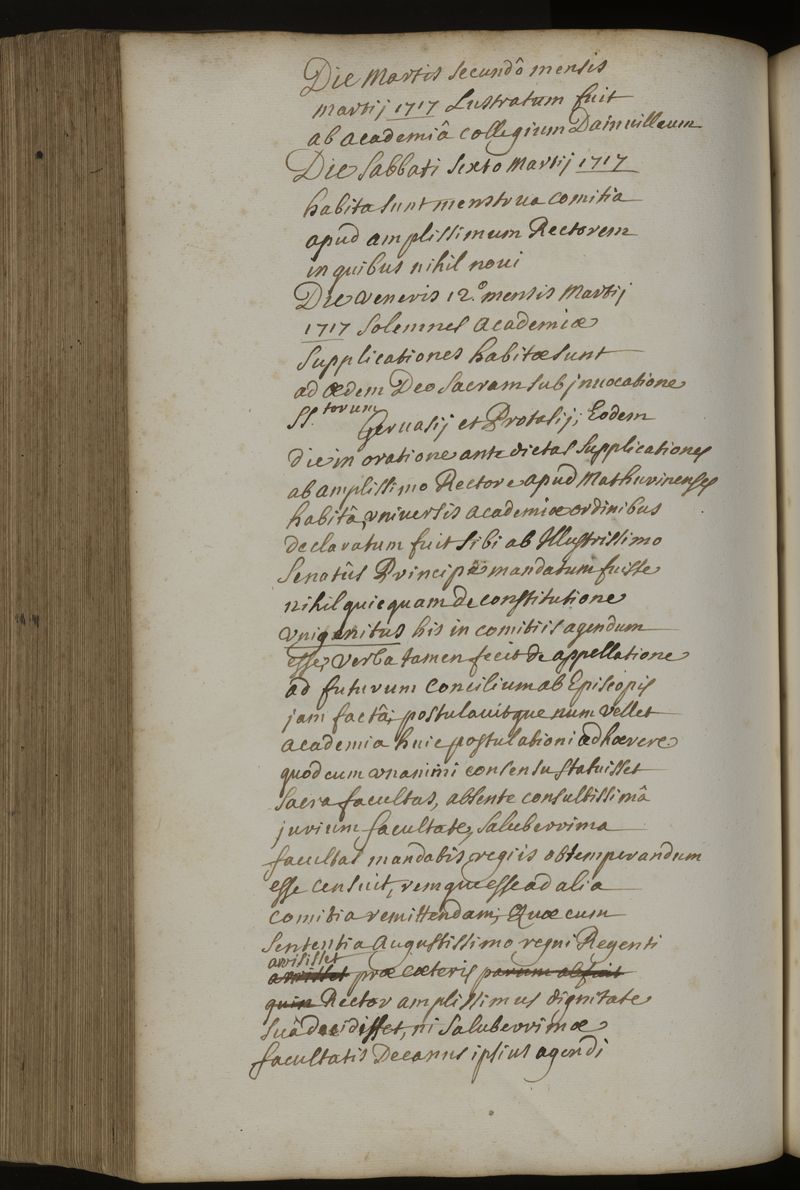 Die Martis secundô mensis
martij 1717 Lustratum fuit
ab academiâ collegium Dainuilleum
Die Sabbati sexto Martij 1717
habita sunt menstrua comitia
apud amplissimum Rectorem
in quibus nihil noui
Die veneris 12.° mensis Martij
1717 solemnes Academiæ
supplicationes habitæ sunt
ad ædem Deo Sacram sub jnuocatione
SS.torum Geruasij et Protasij; Eodem
die in oratione ante dictas supplicationes
ab amplissimo Rectore apud Mathurinenses
habitâ, vniuersis academiæ ordinibus
declaratum fuit sibi ab Illustrissimo
Senatûs Principe mandatum fuisse
nihil quicquam de constitutione
vnigenitus his in comitiis agendum
esse, verba tamen fecit de appellatione
ad futurum Concilium ab Episcopis
jam factâ; postulauitque num vellet
academia huic postulationi adhærere
quod cum vnanimi consensu statuisset
sacra facultas, absente consultissimâ
jurium facultate, saluberrima
facultas mandatis regiis obtemperandum
esse censuit, remque esse ad alia
comitia remittendam; Quæ cum
sententia Augustissimo regni Regenti
arrisisset
arrisset præ cæteris parum abfuit
quin Rector amplissimus dignitate
suâ decidisset, ni saluberrimæ
facultatis Decanus ipsius agendi